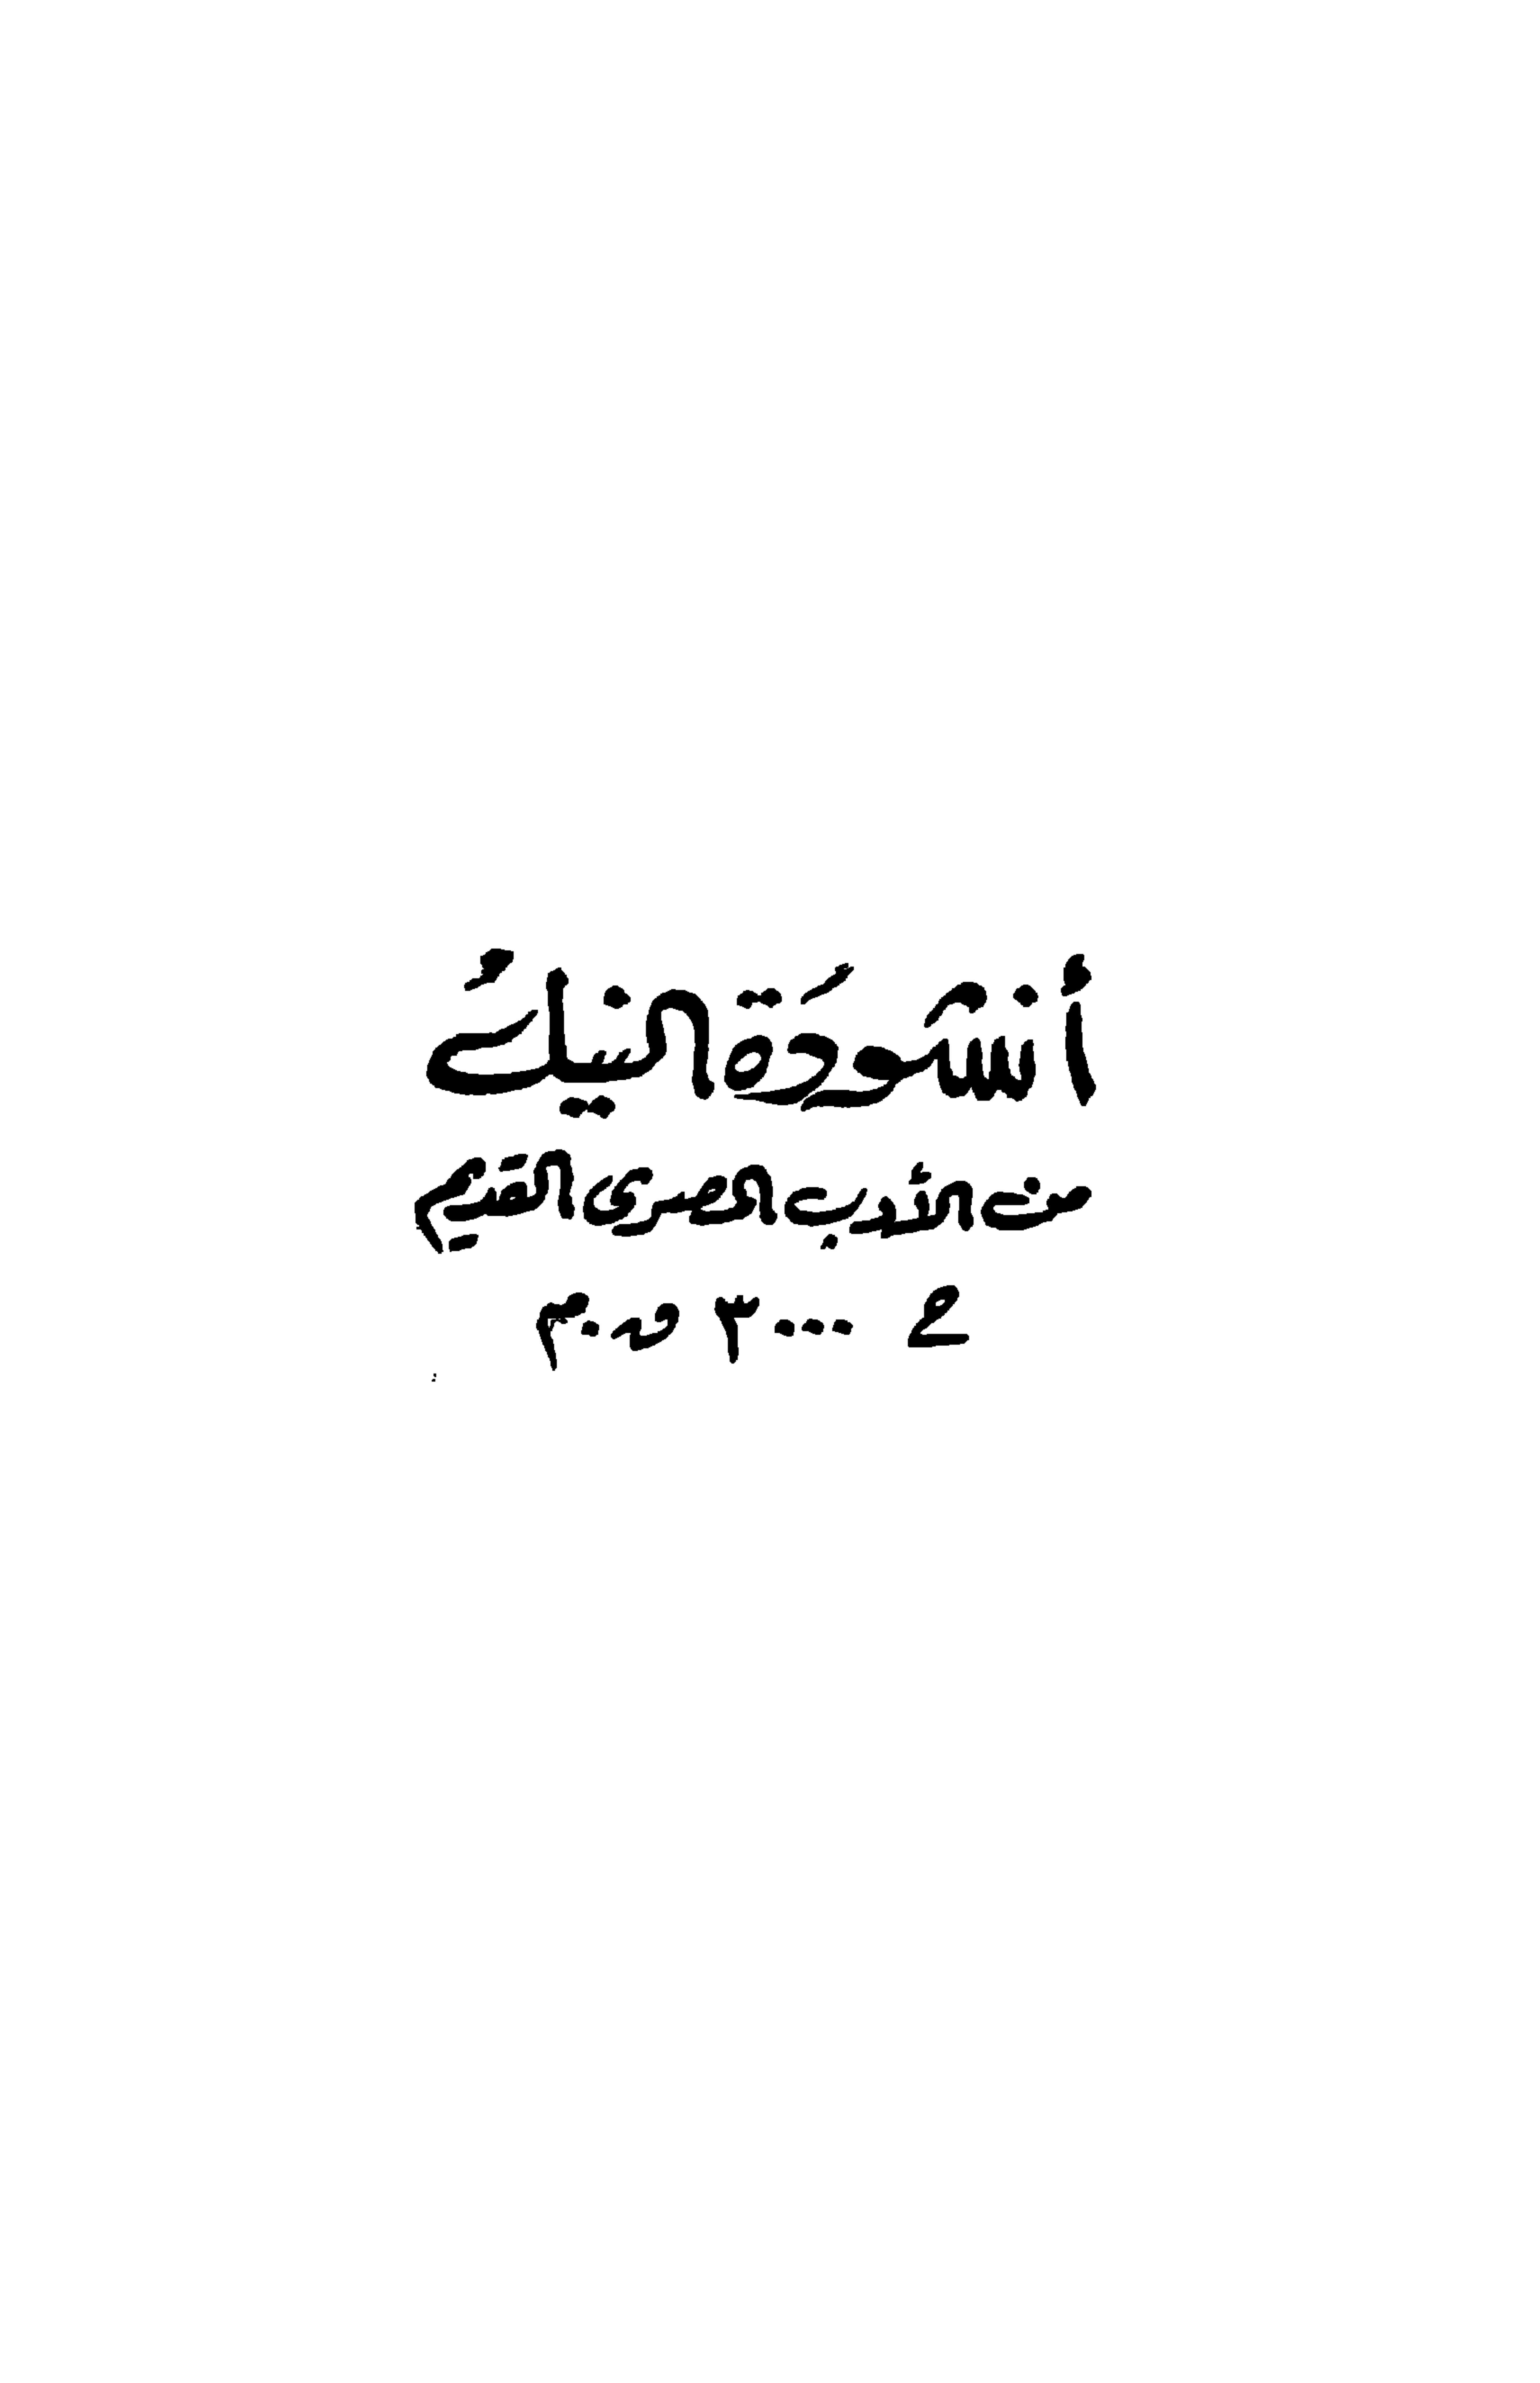 أنشودة النيل
من الأدب المصرى القديم
٣٠٠٠ ق.م